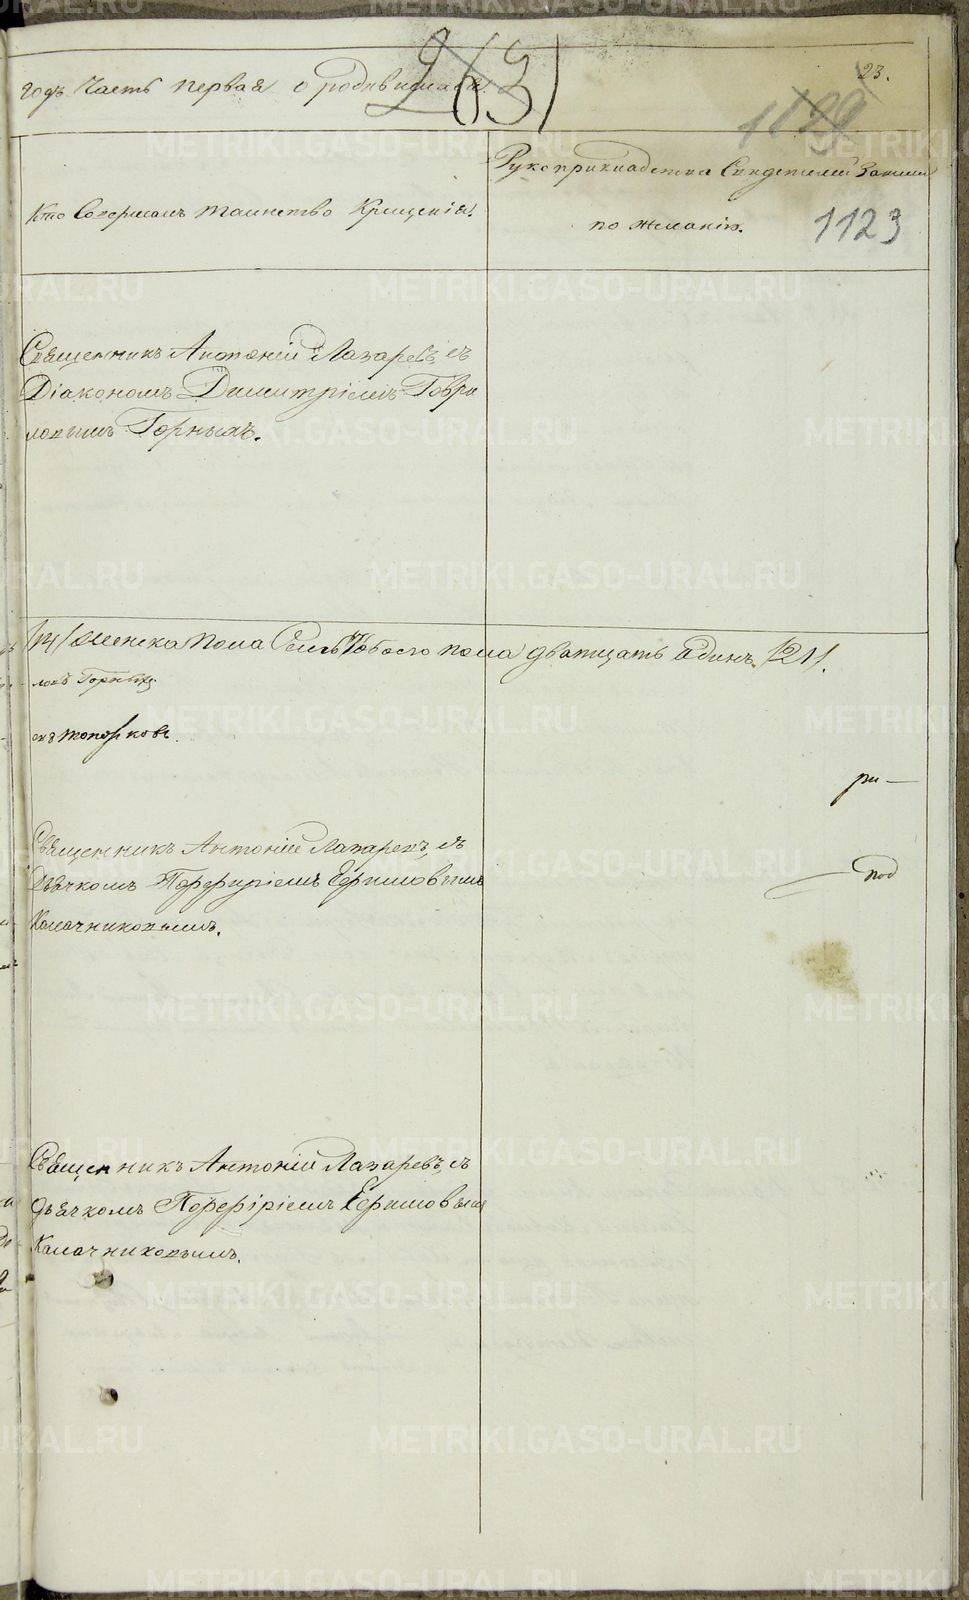 годъ Часть первая о родившихся
263
23.
1129
Кто Совершалъ таинство Крещенія?
Рукоприкладства Свидетелей Записи
по желанію.
1123
Священникъ Антоній Лазаревъ, съ
Діакономъ Димитріемъ Гаври
ловымъ Горныхъ.
/14/ женска пола Семь 7 обоего пола дватцать одинъ /21/.
ловъ Горныхъ
Топорковъ.
ри—
Священникъ Антоній Лазаревъ, съ
Дьячкомъ Порфиріемъ Ефимовымъ
Калачниковымъ.
под
Священникъ Антоній Лазаревъ, съ
дьячкомъ Порфіріемъ Ефимовымъ
Калачниковымъ.
METRIKI.GASO-URAL.RU